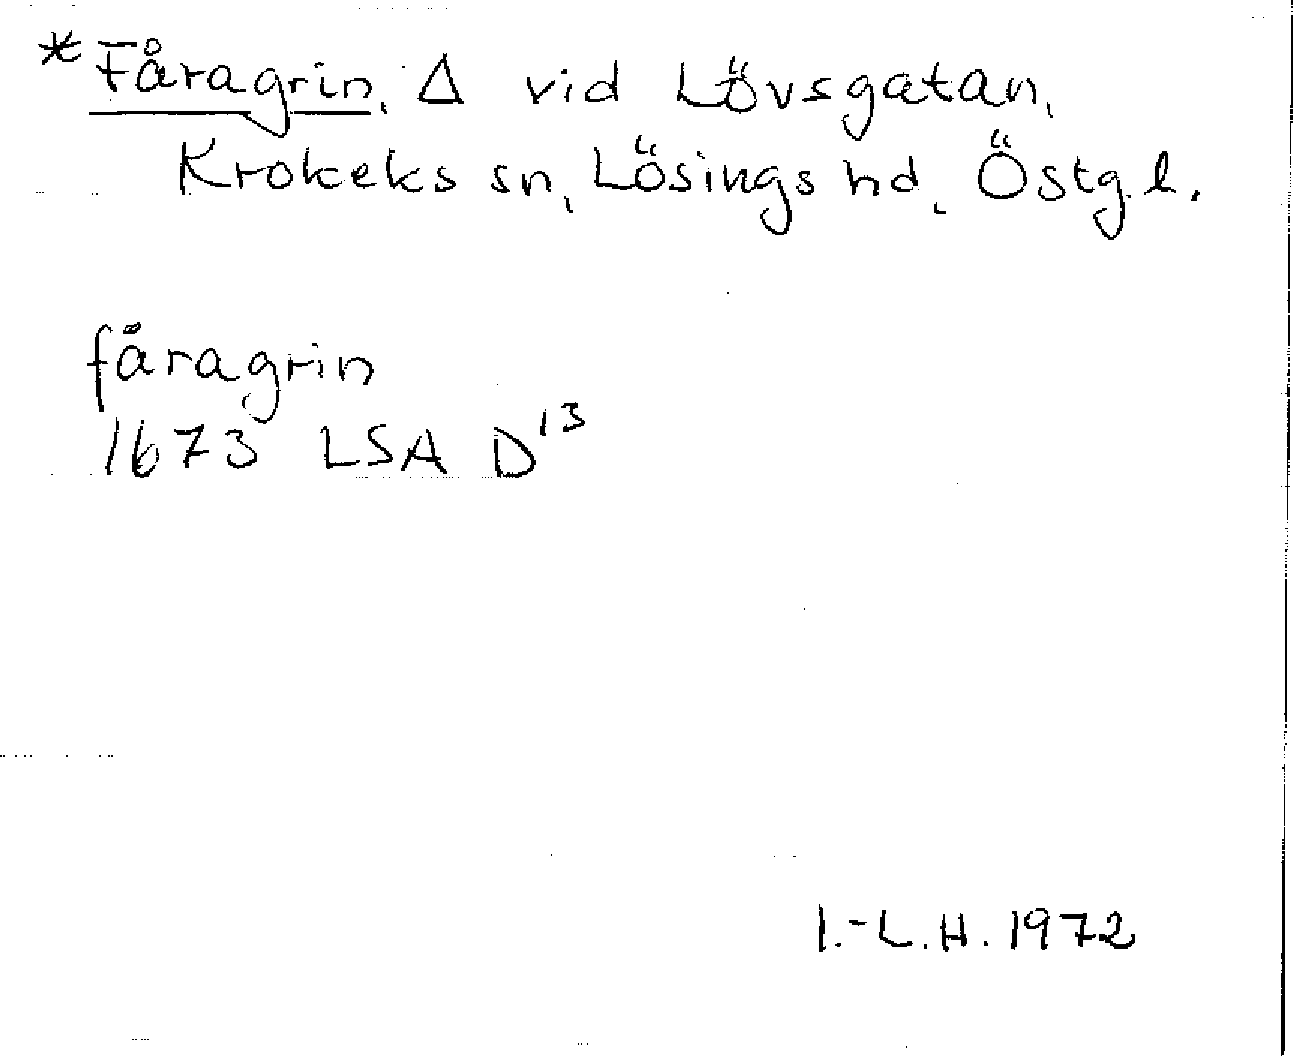 *Fåragrin, Δ vid Lövsgatan,
Krokeks sn, Lösings hd, Östg.l.
fåragrin
1673 LSA D¹³
I.-L.H. 1972